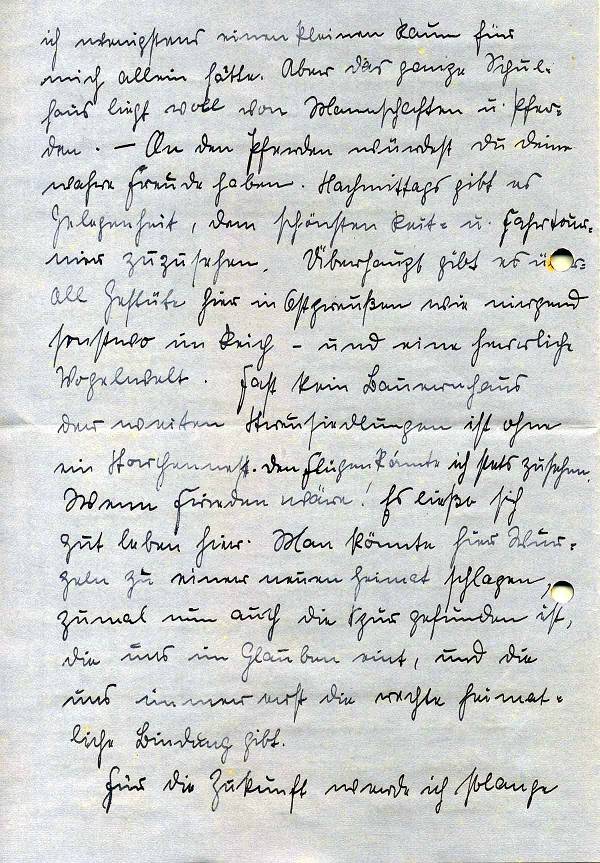 ich wenigstens einen kleinen Raum für
mich allein hätte. Aber das ganze Schul-
haus liegt voll von Mannschaften u. Pfer-
den. — An den Pferden würdest du deine
wahre Freude haben. Nachmittags gibt es
Gelegenheit, dem schönsten Reit- u. Fahrtour-
nier zuzusehen. Überhaupt gibt es über-
all Gestüte hier in Ostpreußen wie nirgend
sonstwo im Reich – und eine herrliche
Vogelwelt. Fast kein Bauernhaus
der weiten Streusiedlungen ist ohne
ein Storchennest. Den Flügen könnte ich stets zusehen.
Wenn Frieden wäre! Es ließe sich
gut leben hier. Man könnte hier Wur-
zeln zu einer neuen Heimat schlagen,
zumal nun auch die Spur gefunden ist,
die uns im Glauben eint, und die
uns immer erst die rechte heimat-
liche Bindung gibt.
Für die Zukunft werde ich solange